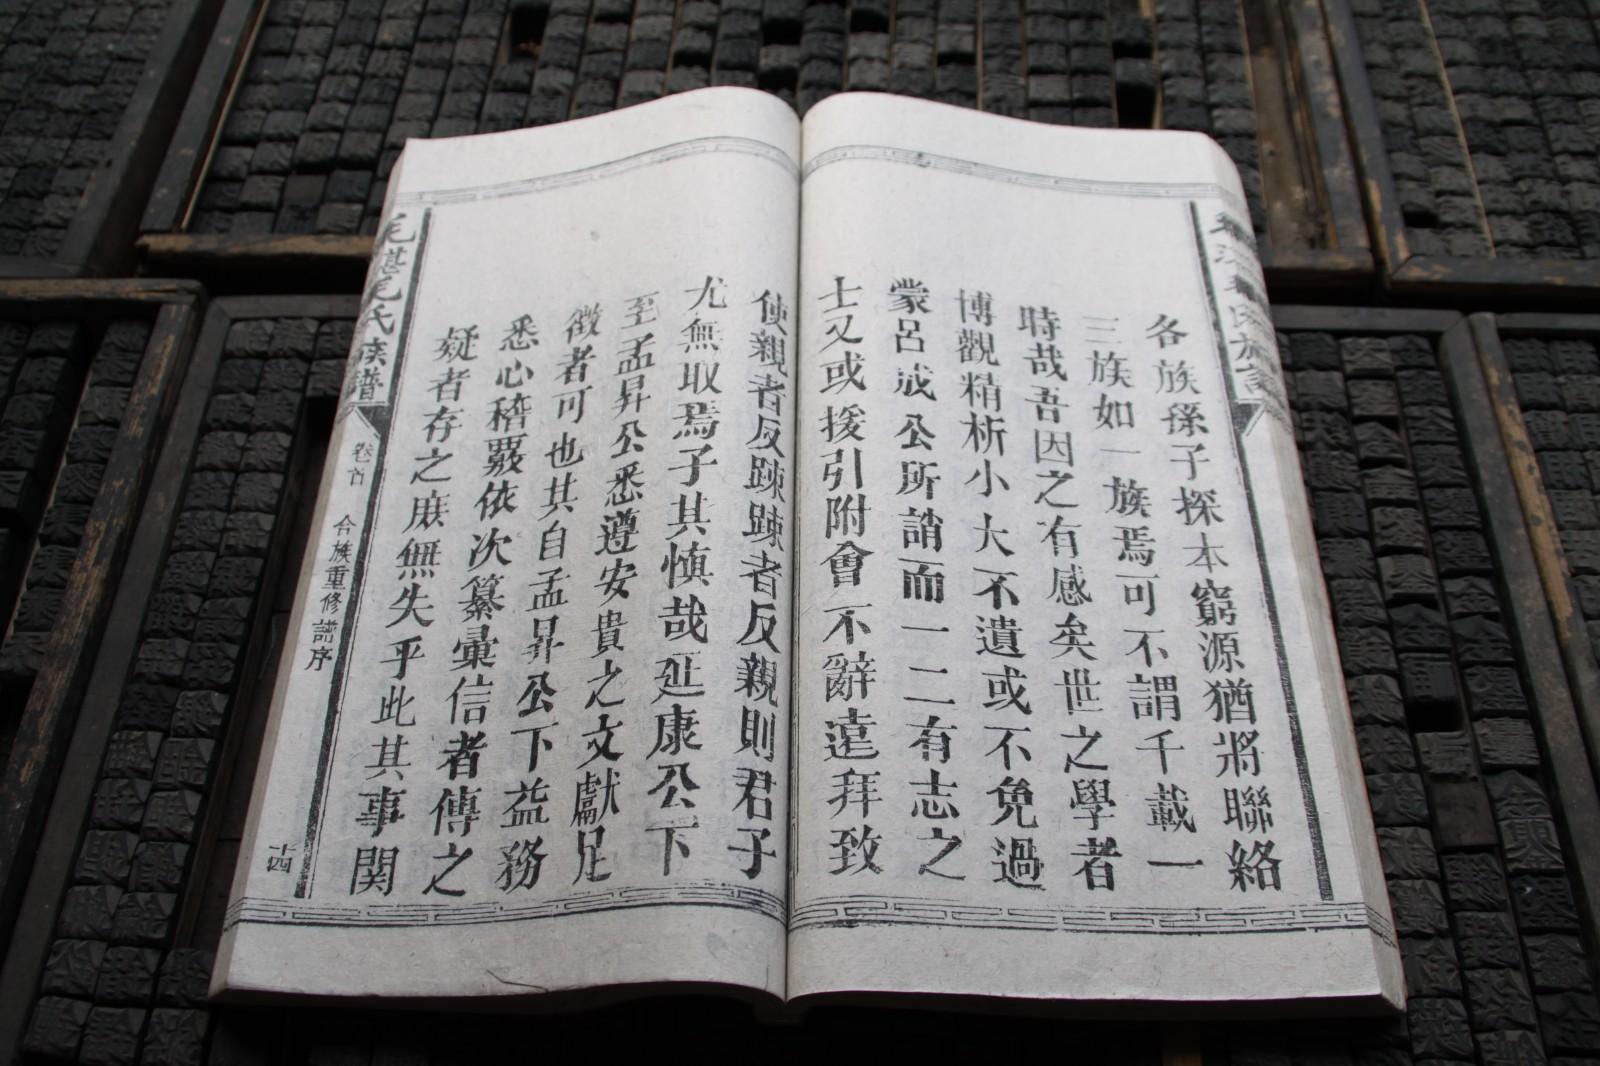 各族孫子探本窮源猶將聯絡
三族如一族焉可不謂千載一
時哉吾因之有感矣世之學者
博觀精析小大不遺或不免過
蒙呂成公所誚而一二有志之
士又或援引附會不辭遠拜致
使親者反踈踈者反親則君子
尤無取焉子其慎哉延康公下
至孟昇公悉遵安貴之文獻足
徵者可也其自孟昇公下益務
悉心稽覈依次纂彙信者傳之
疑者存之庶無失乎此其事関
毛氏族譜
卷首
合族重修譜序
十四